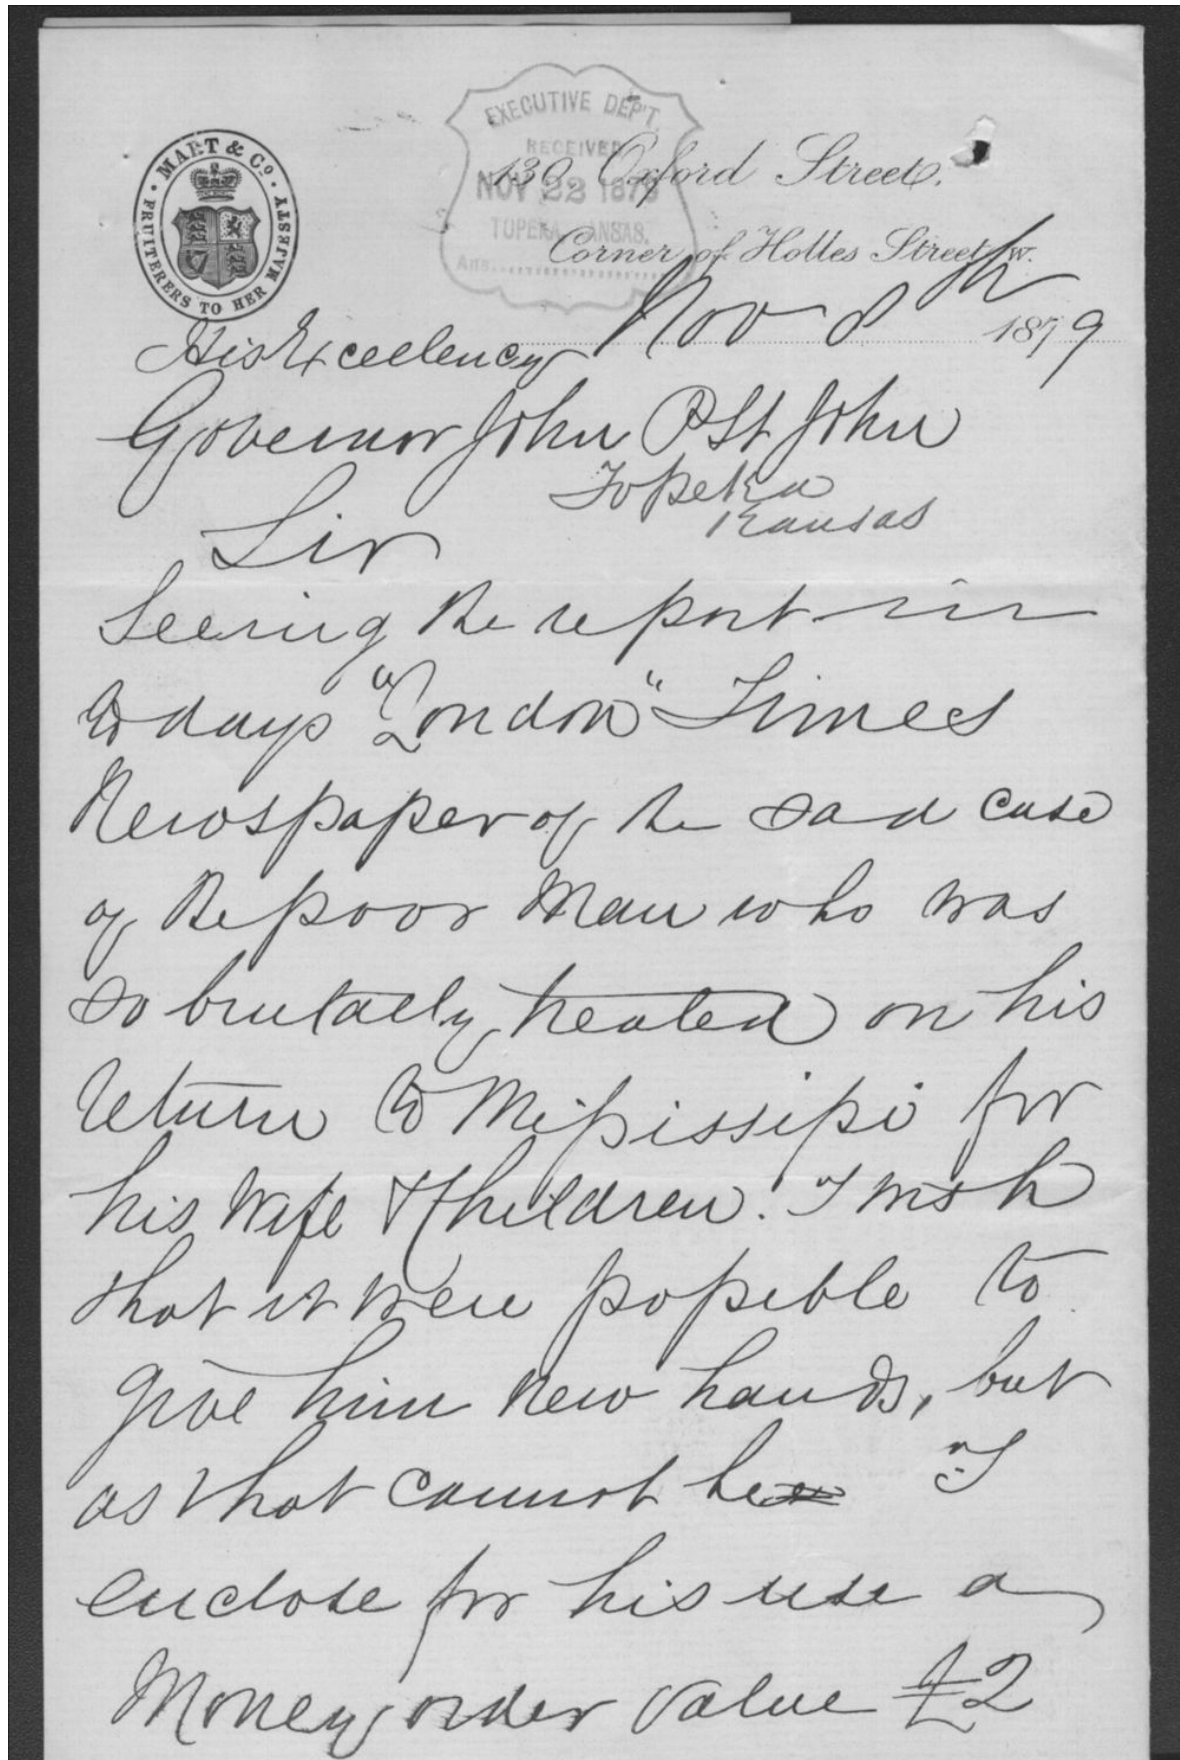 MART & Co.
FRUITERERS TO HER MAJESTY
EXECUTIVE DEP'T.
RECEIVED
NOV 22 1879
TOPEKA, KANSAS.
Ans.
130 Oxford Street.
Corner of Holles Street, W.
Nov 8th 1879
His Excellency
Governor John P St John
Topeka
Kansas
Sir
Seeing the report in
to days "London" Times
Newspaper of the sad case
of the poor Man who was
so brutally treated on his
return to Missississipi for
his Wife & Children. I wish
that it were possible to
give him New hands, but
as that cannot be I
enclose for his use a
Money order value £2